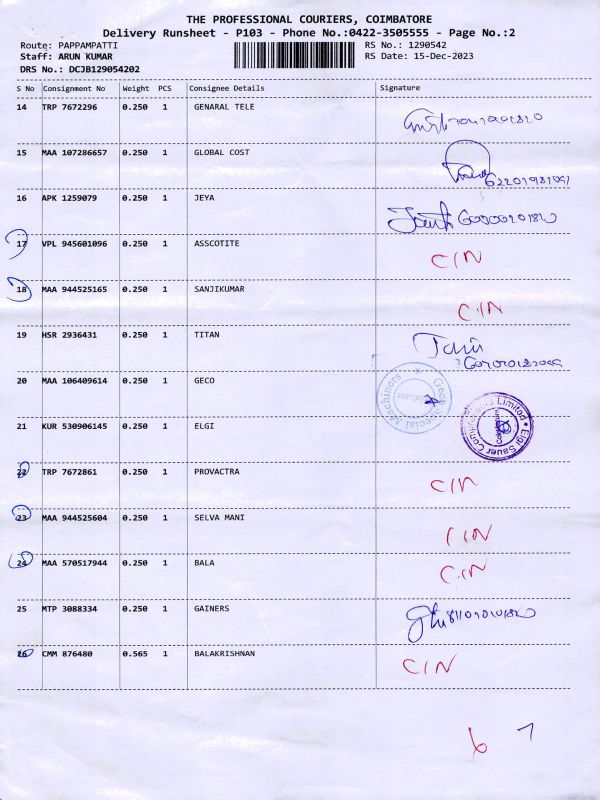 THE PROFESSIONAL COURIERS, COIMBATORE
Delivery Runsheet - P103 - Phone No.:0422-3505555 - Page No.:2
Route: PAPPAMPATTI RS No.: 1290542
Staff: ARUN KUMAR RS Date: 15-Dec-2023
DRS No.: DCJB129054202
S No Consignment No Weight PCS Consignee Details Signature
14 TRP 7672296 0.250 1 GENARAL TELE
15 MAA 107286657 0.250 1 GLOBAL COST
16 APK 1259079 0.250 1 JEYA
17 VPL 945601096 0.250 1 ASSCOTITE C/N
18 MAA 944525165 0.250 1 SANJIKUMAR C/N
19 HSR 2936431 0.250 1 TITAN
20 MAA 106409614 0.250 1 GECO Geco Special Machiners
21 KUR 530906145 0.250 1 ELGI Elgi Sauer Compressors Limited
22 TRP 7672861 0.250 1 PROVACTRA C/N
23 MAA 944525604 0.250 1 SELVA MANI C/N
24 MAA 570517944 0.250 1 BALA C/N
25 MTP 3088334 0.250 1 GAINERS
26 CMM 876480 0.565 1 BALAKRISHNAN C/N
6 7